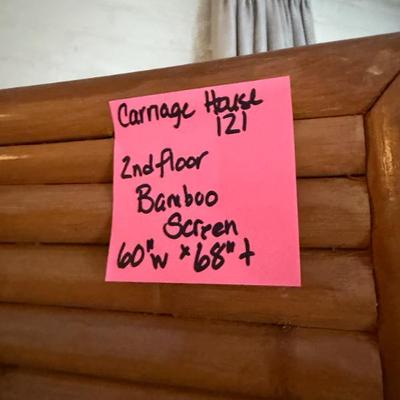 Carriage House
121
2nd floor
Bamboo
Screen
60"w x 68" t